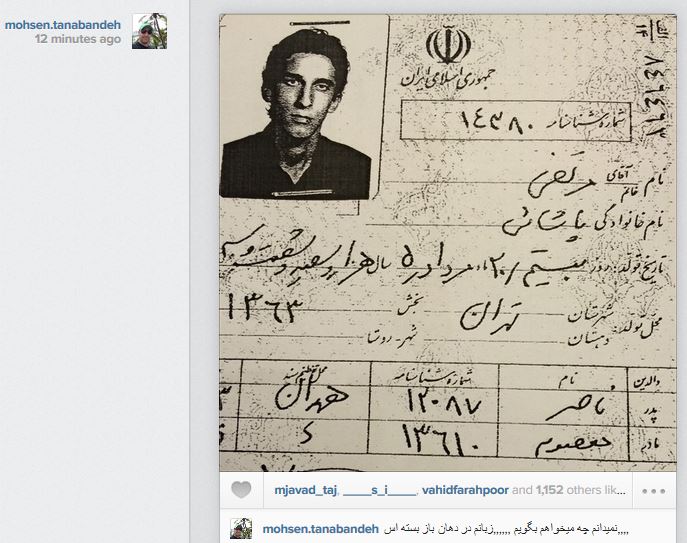 mohsen.tanabandeh
12 minutes ago
جمهوری اسلامی ایران
شماره شناسنامه ۱۴۳۸۰
نام آقای خانم مرتضی
نام خانوادگی پاشائی
تاریخ تولد: روز بیستم ۲۰ ماه مرداد ۵ سال هزار و سیصد و شصت و سه
۱۳۶۳
محل تولد: شهرستان تهران بخش
دهستان شهر - روستا
والدین نام شماره شناسنامه
پدر ناصر ۱۲۰۸۷
مادر معصومه ۱۳۶۱۰
mjavad_taj, ____s_i____, vahidfarahpoor and 1,152 others lik...
mohsen.tanabandeh نمیدانم چه میخواهم بگویم ,,,,,,زبانم در دهان باز بسته اس,,,,